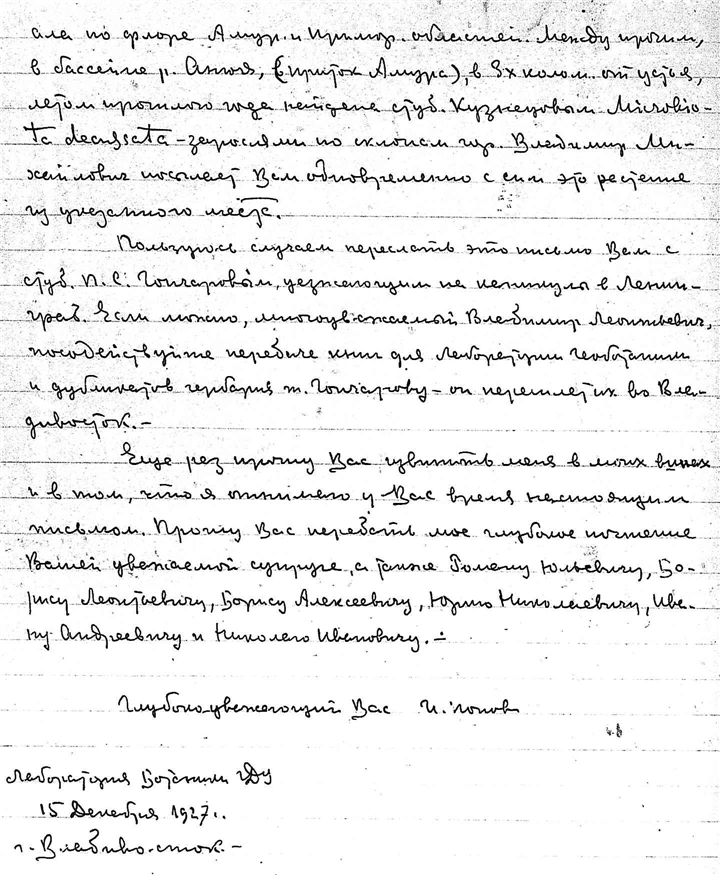 ала по флоре Амур. и Примор. областей. Между прочим,
в бассейне р. Анюя, (приток Амура), в 3х колом. от устья,
летом прошлого года найдена студ. Кузнецовым Microbio-
ta decussata - зарослями по склонам гор. Владимир Ми-
хайлович посылает Вам одновременно с сим это растение
из указанного места.
Пользуюсь случаем переслать это письмо Вам с
студ. П. С. Гончаровым, уезжающим на каникулы в Ленин-
град. Если можно, многоуважаемый Владимир Леонтьевич,
посодействуйте передаче книг для Лаборатории Геоботаники
и дубликатов гербария т. Гончарову - он перешлет их во Вла-
дивосток. -
Еще раз прошу Вас извинить меня в моих винах
и в том, что я отнимаю у Вас время настоящим
письмом. Прошу Вас передать мое глубокое почтение
Вашей уважаемой супруге, а также Роману Юльевичу, Бо-
рису Леонтьевичу, Борису Алексеевичу, Юрию Николаевичу, Ива-
ну Андреевичу и Николаю Ивановичу. -
Глубокоуважающий Вас И. Попов
Лаборатория Ботаники ГДУ
15 Декабря 1927 г.
г. Владивосток. -